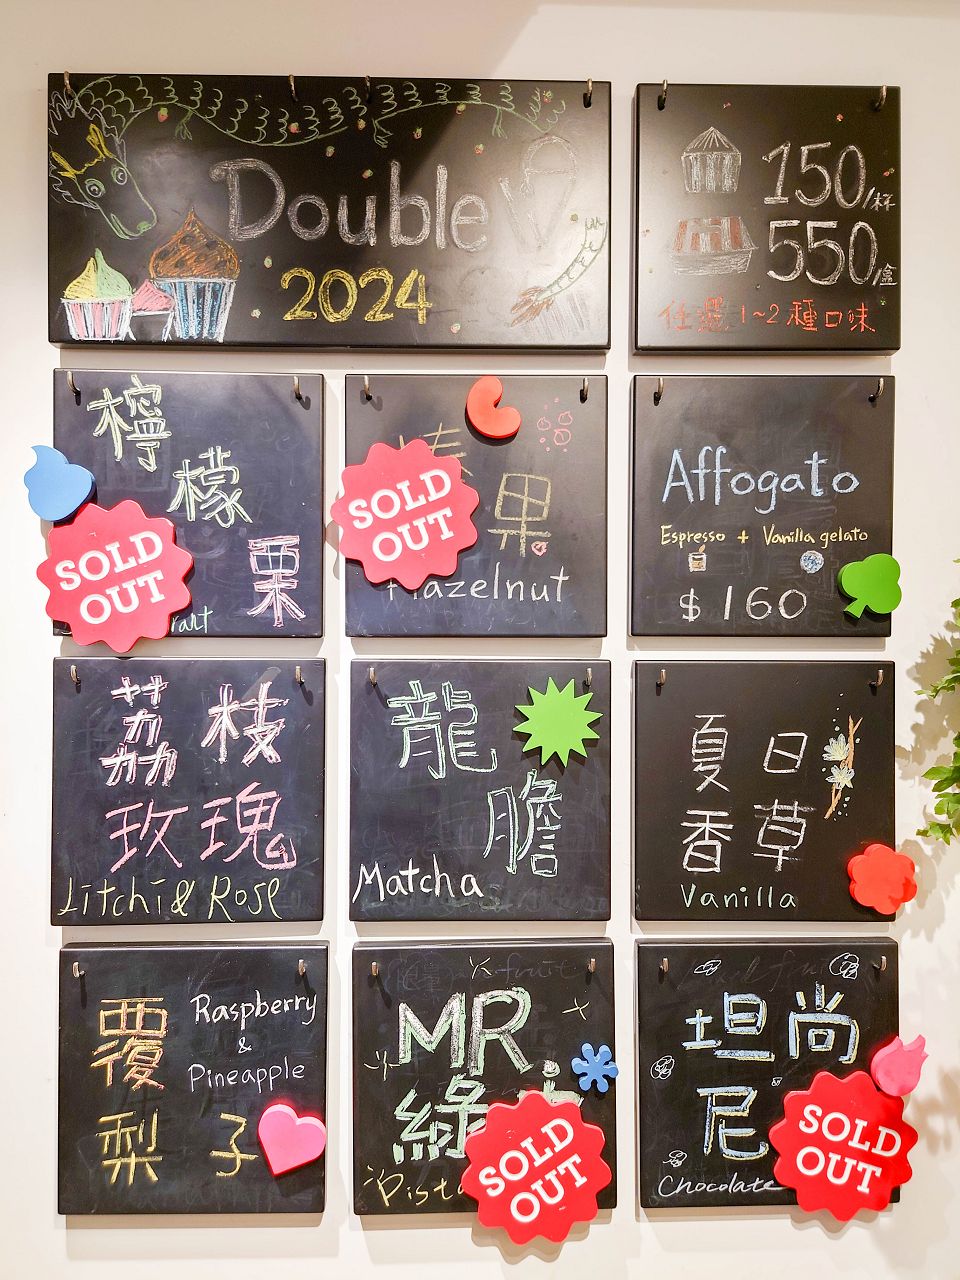 Double V
2024
150/杯
550/盒
任選 1~2 種口味
檸
檬
栗
SOLD
OUT
果
SOLD
OUT
Hazelnut
Affogato
Espresso + Vanilla gelato
$160
荔枝
玫瑰
Litchi & Rose
龍
膽
Matcha
夏日
香草
Vanilla
覆
梨子
Raspberry
&
Pineapple
MR.
綠
SOLD
OUT
坦尚
尼
Chocolate
SOLD
OUT